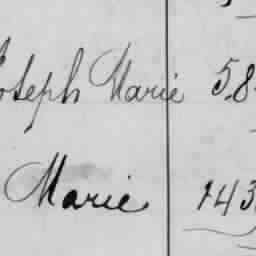 Joseph Marie 58
Marie 143